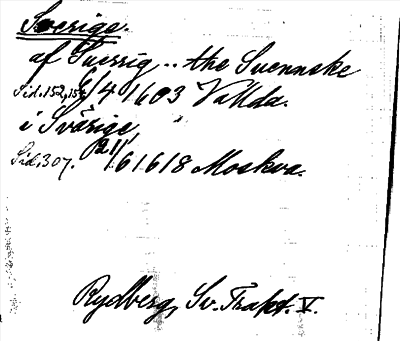 Sverige.
af Suerrig .. the Suennske
Sid. 152, 154 4/4 1603 Vallda.
i Svärige
Sid. 307. 21/1 1618 Moskva.
Rydberg, Sv. Trakt. V.